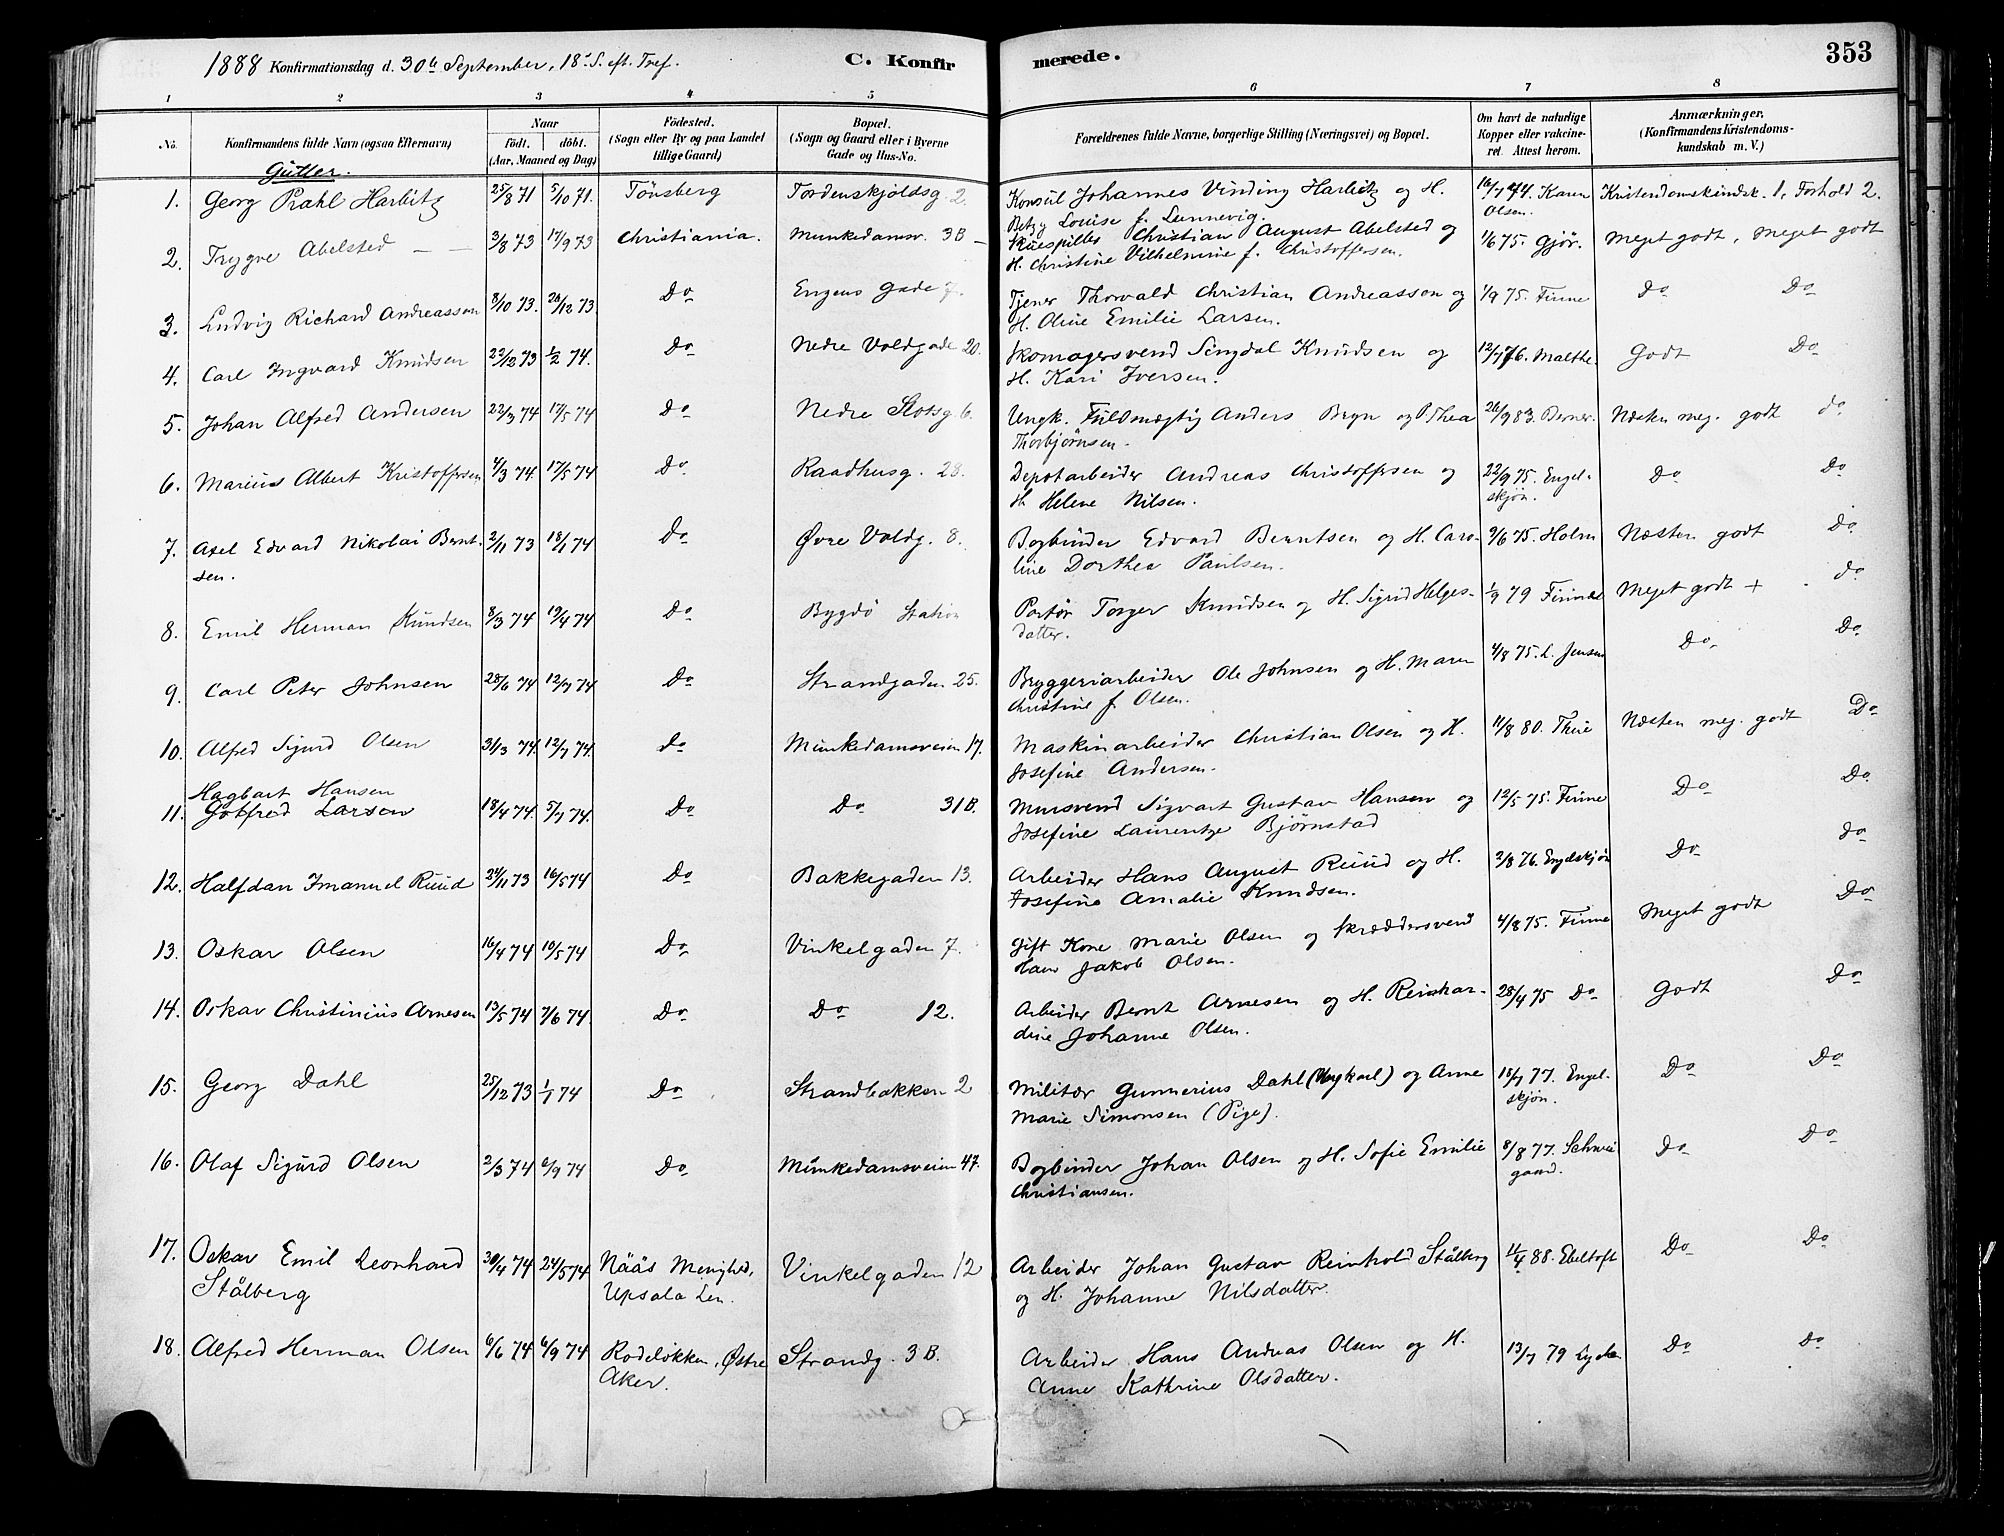 1888 Konfirmationsdag d. 30te September, 18. S. eft. Tref. C. Konfirmerede. 353
1 2 3 4 5 6 7 8
No. Konfirmandens fulde Navn (ogsaa Efternavn) Naar födt. döbt. (Aar, Maaned og Dag) Födested. (Sogn eller By og paa Landet tillige Gaard) Bopæl. (Sogn og Gaard eller i Byerne Gade og Hus-No. Forældrenes fulde Navne, borgerlige Stilling (Næringsvei) og Bopæl. Om havt de naturlige Kopper eller vakcineret. Attest herom. Anmærkninger. (Konfirmandens Kristendomskundskab m. V.)
Gutter.
1. Georg Prahl Harbitz 25/8 71 5/10 71. Tönsberg Tordenskjoldsg. 2. Konsul Johannes Vinding Harbitz og H. 16/7 74. Karen Kristendomskundsk. 1, Forhold 2.
Betzy Louise f. Lunnevig. Olsen.
2. Trygve Abelsted 3/8 73 17/9 73 Christiania. Munkedamsv. 3B Skuespiller Christian August Abelsted og 1/6 75. Gjör. Meget godt, meget godt
H. Christine Vilhelmine f. Christoffersen.
3. Ludvig Richard Andreassen 8/10 73. 26/12 73 Do Engens Gade 7. Tjener Thorvald Christian Andreasson og 1/9 75. Finne Do Do
H. Oline Emilie Larsen.
4. Carl Ingvard Knudsen 22/12 73 1/2 74. Do Nedre Voldgade 20. Skomagersvend Singdal Knudsen og 12/7 76. Malthe. Godt Do
H. Kari Iversen.
5. Johan Alfred Andersen 22/3 74 17/5 74 Do Nedre Slotsg. 6. Ungk. Fuldmægtig Anders Bryn og P. Thea 26/9 83. Berner. Næsten meg. godt do
Thorbjørnsen.
6. Marius Albert Kristoffersen 4/3 74. 17/5 74 Do Raadhusg. 28. Depotarbeider Andreas Christoffersen og 22/9 75. Engel- Do Do
H. Helene Nilsen. skjön.
7. Axel Edvard Nikolai Bernt- 2/11 73 18/1 74 Do Øvre Voldg. 8. Bogbinder Edvard Berntsen og H. Caro- 9/6 75. Holm Næsten godt Do
sen. line Dorthea Paulsen.
8. Emil Herman Knudsen 8/3 74 19/4 74 Do Bygdö Station Portör Torger Knudsen og H. Sigrid Helges- 1/9 79 Meget godt + do
datter.
9. Carl Peter Johnsen 28/6 74 12/7 74 Do Strandgaden 25. Bryggeriarbeider Ole Johnsen og H. Maren 4/8 75. L. Jensen Do Do
Christine f. Olsen.
10. Alfred Sigurd Olsen 31/3 74 12/7 74. Do Munkedamsveien 17. Maskinarbeider Christian Olsen og H. 11/8 80. Thue Næsten meg. godt Do
Josefine Andersen.
Hagbart Hansen
11. Gotfred Larsen 18/4 74. 5/7 74. Do Do 31B. Mursvend Sigvart Gustav Hansen og 12/5 75. Finne Do Do
Josefine Laurentze Bjørnstad
12. Halfdan Imanuel Ruud 24/11 73 16/5 74 Do Bakkegaden 13. Arbeider Hans August Ruud og H. 2/8 76. Engelskjön Do do
Josefine Amalie Knudsen.
13. Oskar Olsen 16/4 74 10/5 74 Do Vinkelgaden 7. Gift Kone Marie Olsen og Skræddersvend 4/8 75. Finne Meget godt Do
Hans Jakob Olsen.
14. Oskar Christinius Arnesen 13/5 74 7/6 74. Do Do 12. Arbeider Bernt Arnesen og H. Reinhar- 28/4 75 Do Godt Do
dine Johanne Olsen.
15. Georg Dahl 25/12 73 1/1 74 Do Strandbakken 2 Militær Gunnerius Dahl (Ungkarl) og Anne 18/7 77. Engel- Do Do
Marie Simonsen (Pige). skjön.
16. Olaf Sigurd Olsen 2/3 74 6/9 74 Do Munkedamsveien 47. Bogbinder Johan Olsen og H. Sofie Emilie 8/8 77. Schwei Do Do
Christiansen. gaard.
17. Oskar Emil Leonhard 30/4 74 24/5 74 Nääs Menighed, Vinkelgaden 12 Arbeider Johan Gustav Reinhold Stålberg 11/4 88. Ebeltoft Do Do
Stålberg Upsala Len. og H. Johanne Nilsdatter.
18. Alfred Herman Olsen 6/6 74 6/9 74 Rodeløkken, Østre Strandg. 3B. Arbeider Hans Andreas Olsen og H. 13/7 79 Do Do
Aker. Anne Kathrine Olsdatter.